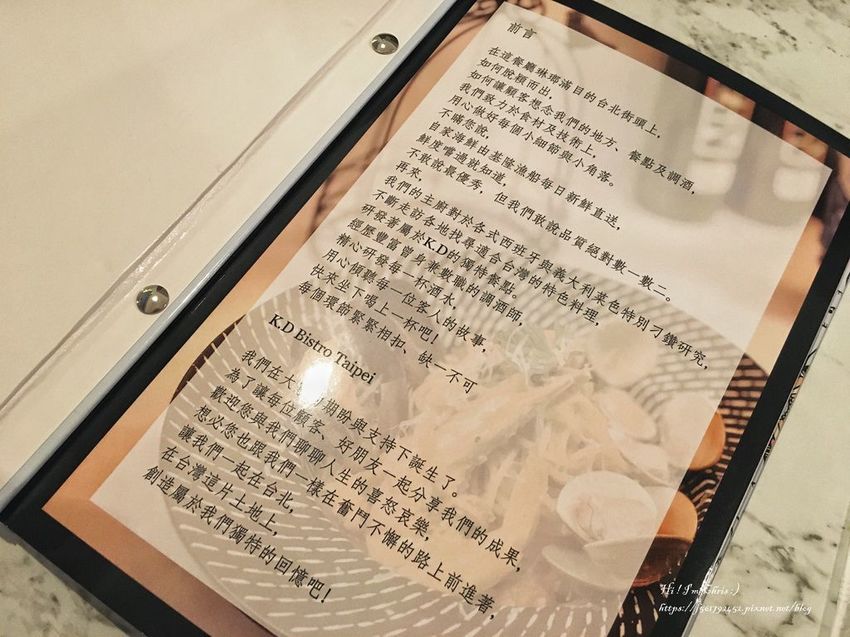 前言
在這餐廳琳瑯滿目的台北街頭上,
如何脫穎而出,
如何讓顧客想念我們的地方、餐點及調酒,
我們致力於食材及技術上,
用心做好每個小細節與小角落。
不瞞您說,
自家海鮮由基隆漁船每日新鮮直送,
鮮度嚐過就知道,
不敢說最優秀,但我們敢說品質絕對數一數二。
再來,
我們的主廚對於各式西班牙與義大利菜色特別刁鑽研究,
不斷走訪各地找尋適合台灣的特色料理,
研發著屬於K.D的獨特餐點。
經歷豐富曾身兼數職的調酒師,
精心研發每一杯酒水,
用心傾聽每一位客人的故事,
快來坐下喝上一杯吧!
每個環節緊緊相扣、缺一不可
K.D Bistro Taipei
我們在大 期盼與支持下誕生了。
為了讓每位顧客、好朋友一起分享我們的成果,
歡迎您與我們聊聊人生的喜怒哀樂,
想必您也跟我們一樣在奮鬥不懈的路上前進著,
讓我們一起在台北,
在台灣這片土地上,
創造屬於我們獨特的回憶吧!
Hi! I'm Chris :)
https://j501792452.pixnet.net/blog